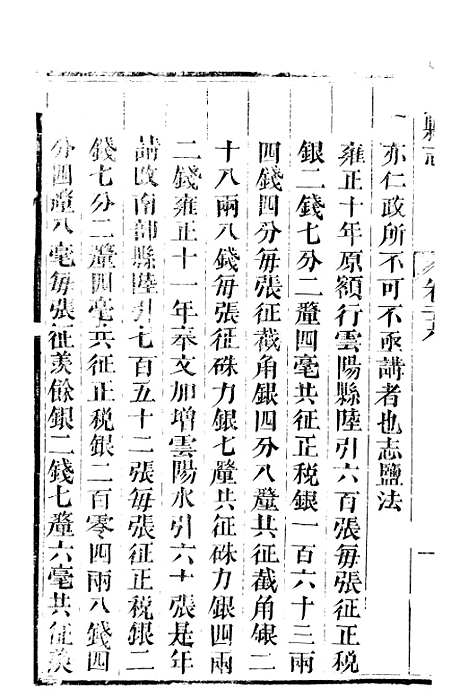 縣志
卷二十九
一
亦仁政所不可不亟講者也志鹽法
雍正十年原額行雲陽縣陸引六百張每張征正稅
銀二錢七分二釐四毫共征正稅銀一百六十三兩
四錢四分每張征截角銀四分八釐共征截角銀二
十八兩八錢每張征硃力銀七釐共征硃力銀四兩
二錢雍正十一年奉文加增雲陽水引六十張是年
請改南部縣陸引七百五十二張每張征正稅銀二
錢七分二釐四毫共征正稅銀二百零四兩八錢四
分四釐八毫每張征羨餘銀二錢七釐六毫共征羨